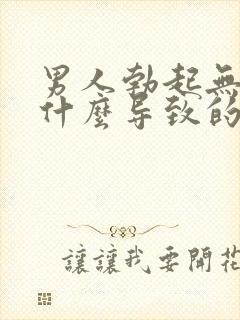 男人勃起無
什麼导致的
讓讓我要開花